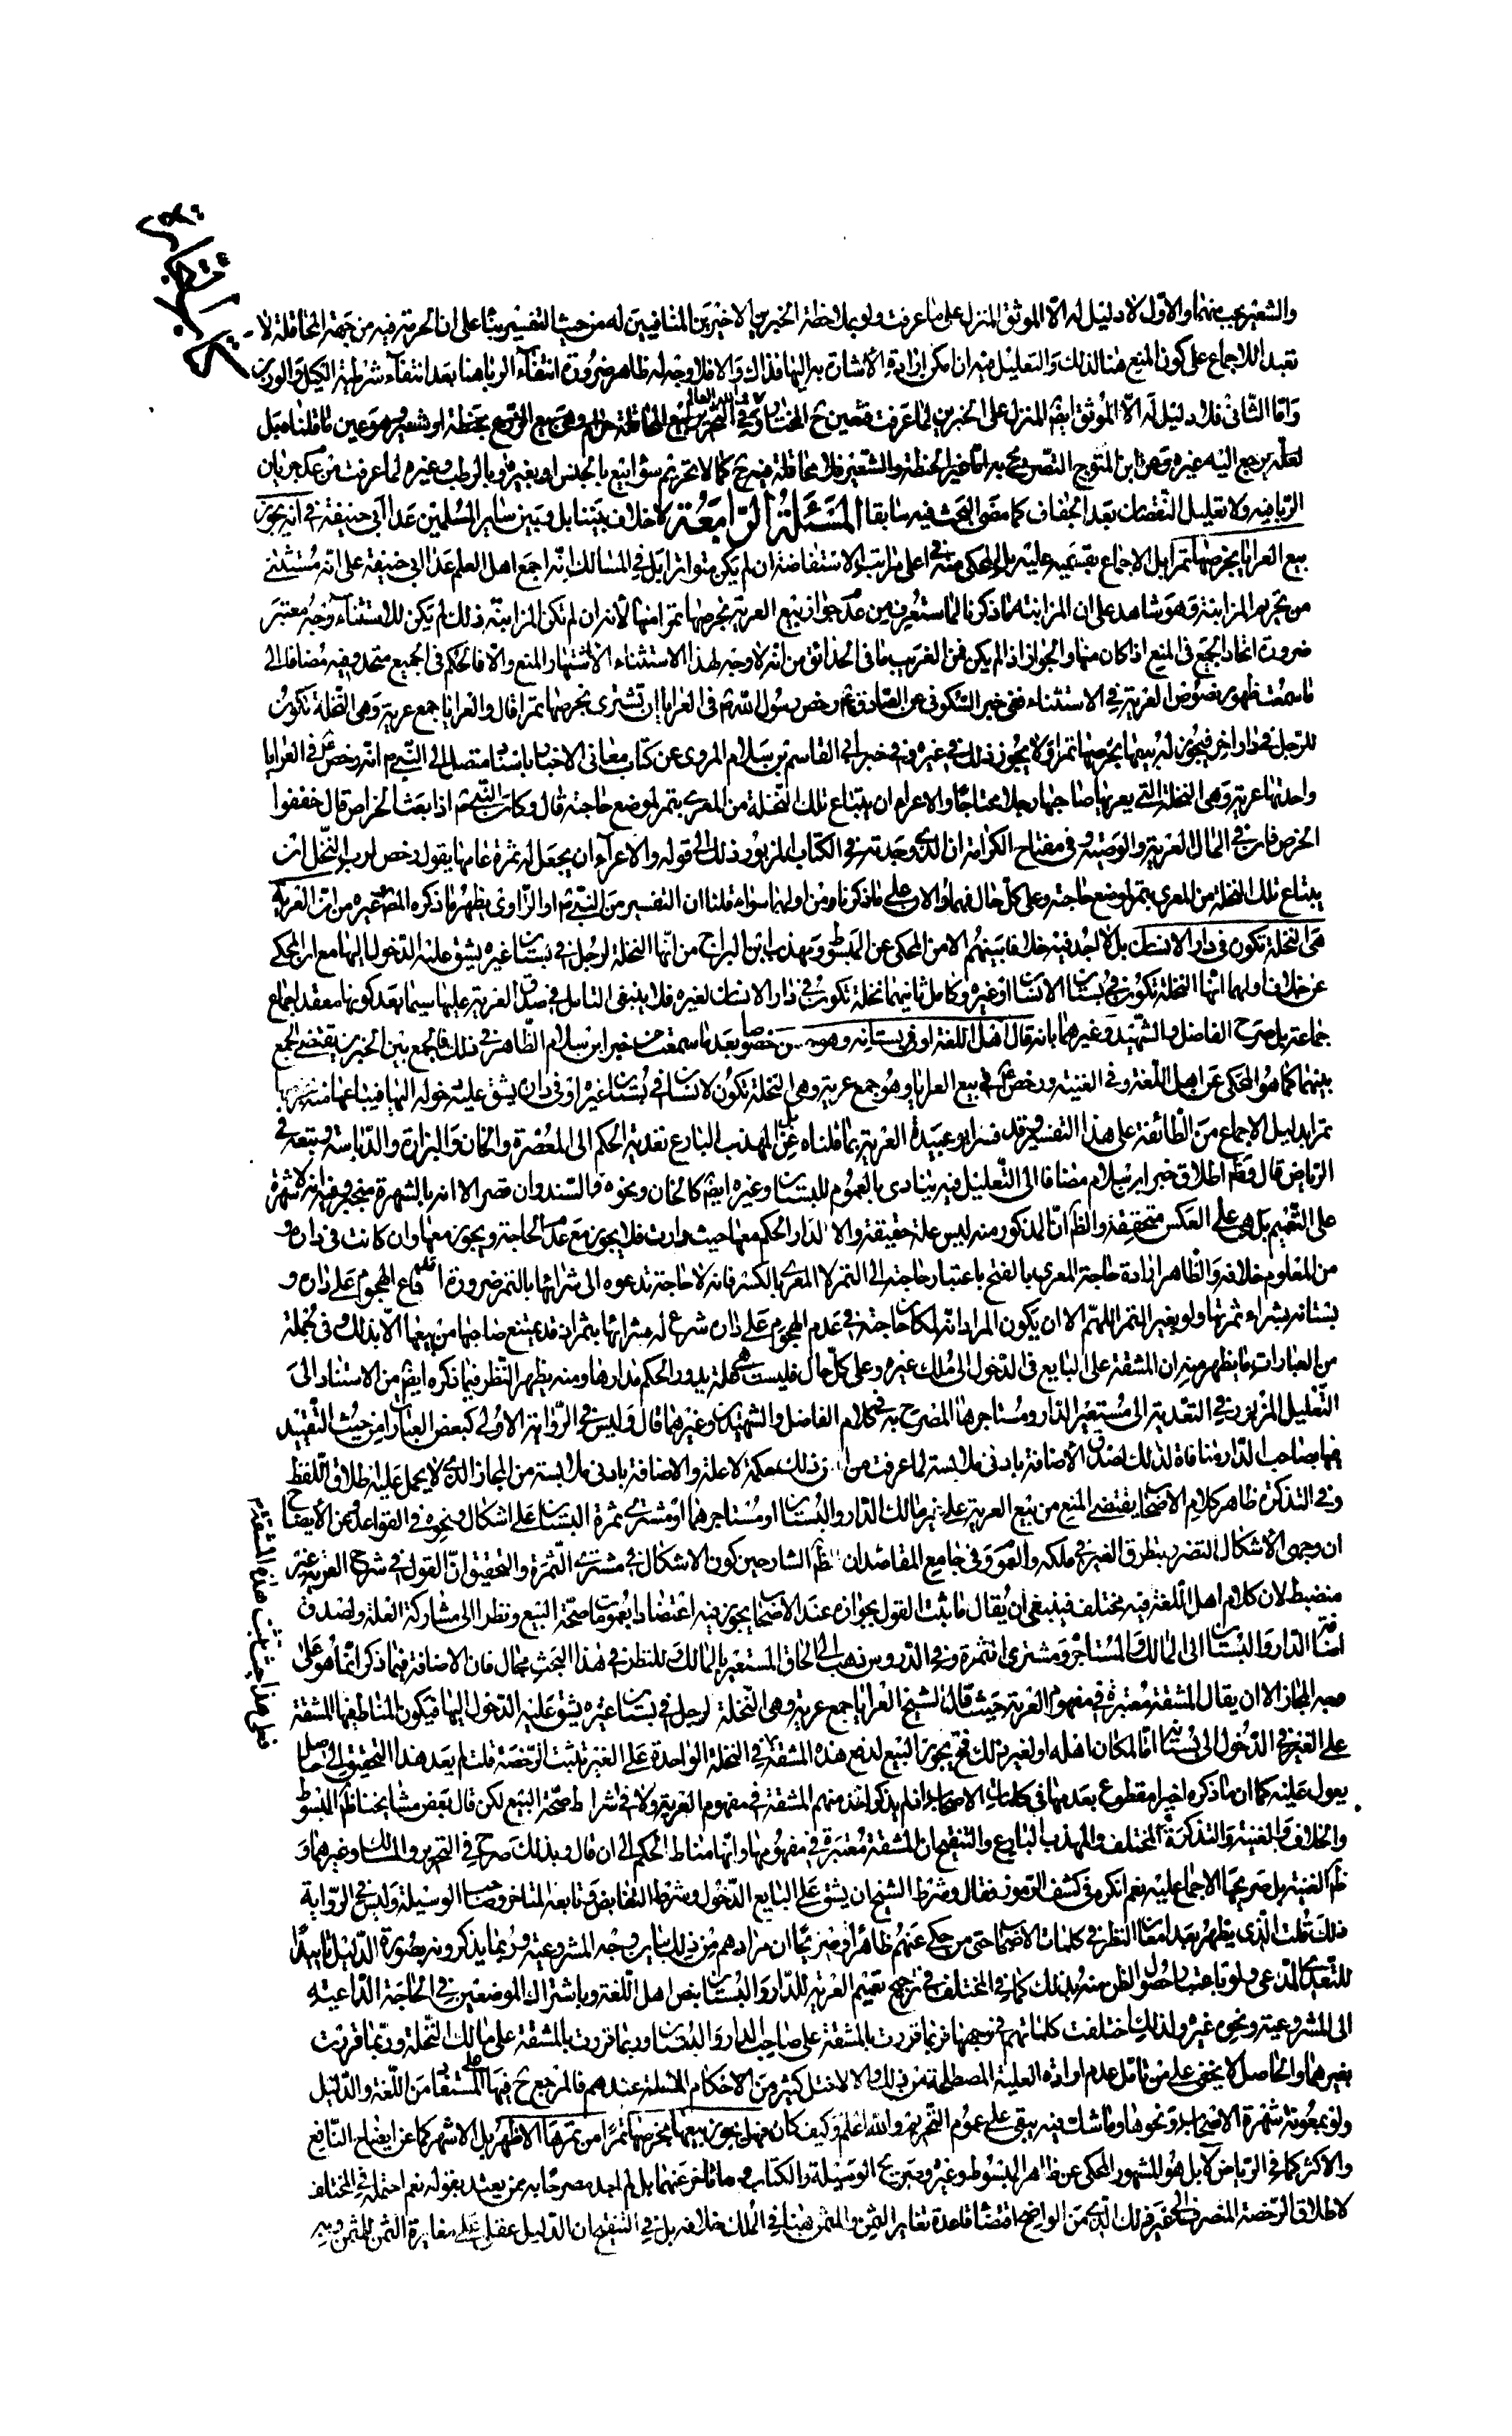 والشعير يجب منهما والاول لا دليل له الا الموثق المنزل على ما عرفت ولو بملاحظة الخبرين الاخيرين المنافيين له من حيث التفسير بناء على ان الحرمة فيه من جهة المحاقلة لا
تعبد اللاجماع على كون المنع هنا لذلك والتعليل فيه ان امكن ارادة الاشارة به اليها فذاك والا فلا وجه له ظاهر ضرورة انتفاء الربا هنا بعد انتفاء شرطية الكيل والوزن
واما الثانى فلا دليل له الا الموثق ايضا المنزل على الخبرين لما عرفت فتعين ح المختار وفي التحرير بيع المحاقلة حرام وهى بيع الزرع بحنطة او شعير وهو عين ما قلناه بل
لعله يرجع اليه غيره وعن ابن المتوج التصريح به اما غير الحنطة والشعير فلا محاقلة فيه ح كما لا تحريم سواء بيع بالجنس او بغيره وبالرطب وغيره لما عرفت من عدم جريان
الربا فيه ولا تعليل النقصان بعد الجفاف كما مضى البحث فيه سابقا المسئلة الرابعة لا خلاف بيننا بل وبين ساير المسلمين عدا أبي حنيفة في انه يجوز
بيع العرايا بخرصها تمرا بل الاجماع بقسميه عليه بل المحكى منه في اعلى مراتب الاستفاضة ان لم يكن متواترا بل في المسالك انه اجمع اهل العلم عدا ابي حنيفة على انه مستثنى
من تحريم المزابنة وهو شاهد على ان المزابنة ما ذكرنا لما ستعرف من عدم جواز بيع العرية بخرصها تمرا منها لأنه ان لم تكن المزابنة ذلك لم يكن للاستثناء وجه معتبر
ضرورة اتحاد الجميع فى المنع اذا كان منها والجواز اذا لم يكن فمن الغريب ما فى الحدائق من انه لا وجه لهذا الاستثناء الا اشتهار المنع والا فالحكم فى الجميع متحد وفيه مضافا الى
ما سمعت ظهور نصوص العرية في الاستثناء ففي خبر السكونى عن الصادق ع رخص رسول الله ص فى العرايا ان تشترى بخرصها تمرا قال والعرايا جمع عرية وهى النخلة تكون
للرجل في دار اخر فيجوز له ان يبيعها بخرصها تمرا ولا يجوز ذلك في غيره وفي خبر ابي القاسم بن سلام المروى عن كتاب معانى الاخبار باسناد متصل الى النبي ص انه رخص في العرايا
واحدتها عرية وهى النخلة التي يعريها صاحبها رجلا محتاجا والاعراء ان يبتاع تلك النخلة من المعرى بتمر لموضع حاجته قال وكان النبي ص اذا بعث الخراص قال خففوا
الخرص فان في المال العرية والوصية وفي مفتاح الكرامة ان الذي وجدته في الكتاب المزبور ذلك الى قوله والاعراء ان يجعل له ثمرة عامها يقول رخص لرب النخل ان
يبتاع تلك النخلة من المعرى بتمر لموضع حاجته وعلى كل حال فهما دالان على ما ذكرناه
هى النخلة تكون فى دار الانسان بل لا اجد فيه خلافا بينهم الا من المحكى عن المبسوط ومهذب ابن البراج من انها النخلة لرجل في بستان غيره يشق عليه الدخول اليها
عن خلاف اولهما انها النخلة تكون في بستان الانسان او غيره وكامل ثانيهما نخلة تكون في دار الانسان لغيره فلا ينبغى التامل في صدق العرية عليها سيما بعد كونها معقد اجماع
جماعة بل صرح الفاضل والشهيد وغيرهما بانه قال اهل اللغة او في بستانه وهو حسن خصوصا بعد ما سمعت من خبر ابن سلام الظاهر في ذلك
بينهما كما هو المحكى عن اهل اللغة وفى الغنية ورخص في بيع العرايا وهو جمع عرية وهى النخلة تكون لانسان في بستان غيره او فى داره يشق عليه دخوله اليها فيبتاعها منه بخرصها
تمرا بدليل الاجماع من الطائفة على هذا التفسير وقد فسر ابو عبيدة العرية بما قلناه بل عن المهذب البارع تعدية الحكم الى المعصرة والخان والبزارة والدباسة وتبعه في
الرياض قال ولعله اطلاق خبر ابن سلام مضافا الى التعليل فيه ينادى بالعموم للبستان وغيره ايضا كالخان ونحوه والسند وان قصر الا انه بالشهرة منجبر وفيه انه لا شهرة
على التعميم بل هى على العكس متحققة والظاهر ان المذكور منه ليس علة حقيقة والا لدار الحكم معها حيث دارت فلا يجوز مع عدم الحاجة ويجوز معها وان كانت فى داره و
من المعلوم خلافه والظاهر ارادة حاجة المعرى بالفتح باعتبار حاجته الى التمر لا المعرى بالكسر فانه لا حاجة تدعوه الى شرائها بالتمر ضرورة اندفاع الهجوم على داره و
بستانه بشراء ثمرتها ولو بغير التمر اللهم الا ان يكون المراد انه لمكان حاجته في عدم الهجوم على داره شرع له شرائها بتمر لانه قد يمتنع صاحبها من بيعها الا بذلك وفى جملة
من العبارات ما يظهر منه ان المشقة على البايع فى الدخول الى ملك غيره وعلى كل حال فليست هى علة يدور الحكم مدارها ومنه يظهر النظر فيما ذكره ايضا من الاستناد الى
التعليل المزبور في التعدية الى مستعير الدار ومستاجرها المصرح به في كلام الفاضل والشهيدين وغيرهما قال وليس في الرواية الاولى كبعض العبارات من حيث التقييد
فيها بصاحب الدار منافاة لذلك لصدق الاضافة بادنى ملابسة لما عرفت من ان ذلك حكمة لا علة والاضافة بادنى ملابسة من المجاز الذى لا يحمل عليه اطلاق اللفظ
وفي التذكرة ظاهر كلام الاصحاب يقتضي المنع من بيع العرية على غير مالك الدار والبستان او مستاجرهما او مشترى ثمرة البستان على اشكال ونحوه فى القواعد وعن الايضاح
ان وجهى الاشكال التضرر بتطرق الغير في ملكه والعموم وفى جامع المقاصد ان ظاهر الشارحين كون الاشكال في مشترى الثمرة والتحقيق ان القول في شرح العرية غير
منضبط لان كلام اهل اللغة فيه مختلف فينبغى ان يقال ما ثبت القول بجوازه عند الاصحاب يجوز فيه اعتضادا بعمومات صحة البيع ونظرا الى مشاركة العلة ولصدق
اضافة الدار والبستان الى المالك والمستاجر ومشترى الثمرة وفي الدروس ذهب الى الحاق المستعير بالمالك وللنظر في هذا البحث مجال فان الاضافة فيما ذكر انما هو على
وجه المجاز الا ان يقال المشقة معتبرة في مفهوم العرية حيث قال الشيخ العرايا جمع عرية وهى النخلة لرجل في بستان غيره يشق عليه الدخول اليها فيكون المناط فيها المشقة
على الغير في الدخول الى بستانه اما لمكان اهله او لغير ذلك فح يجوز البيع لدفع هذه المشقة في النخلة الواحدة على الغير فثبت الرخصة قلت لم يعد هذا التحقيق الى حاصل
يعول عليه كما ان ما ذكره اخيرا مقطوع بعدمه فى كلمات الاصحاب اذ لم يذكر احد منهم المشقة في مفهوم العرية ولا في شرائط صحة البيع لكن قال بعض مشايخنا ظاهر المبسوط
والخلاف والغنية والتذكرة والمختلف والمهذب البارع والتنقيح ان المشقة معتبرة في مفهومها وانها مناط الحكم الى ان قال وبذلك صرح في التحرير والمسالك وغيرهما و
ظاهر الغنية بل صريحها الاجماع عليه نعم انكره فى كشف الرموز فقال وشرط الشيخ ان يشق على البايع الدخول وشرط التقابض وتابعه المتاخر وصاحب الوسيلة وليس في الرواية
ذلك قلت الذى يظهر بعد امعان النظر في كلمات الاصحاب حتى من حكى عنهم ظاهرا او صريحا ان مرادهم من ذلك بيان وجه المشروعية وربما يذكرونه بصورة الدليل تاييدا
للتعدي المدعى ولو باعتبار حصول الظن منه بذلك كما في المختلف في ترجيح تعميم العرية للدار والبستان بنص اهل اللغة وباشتراك الموضعين في الحاجة الداعية
الى المشروعية ونحوه غيره ولذلك اختلفت كلماتهم في توجيهها فربما قررت بالمشقة على صاحب الدار والبستان وربما قررت بالمشقة على مالك النخلة وربما قررت
بغيرهما والحاصل لا يخفى على من تامل عدم ارادة العلية المصطلحة من ذلك والا لاختل كثير من الاحكام المسلمة عندهم فالمرجع ح فيها الى المستفاد من اللغة والدليل
ولو بمعونة شهرة الاصحاب ونحوها وما شك فيه يبقى على عموم التحريم والله اعلم وكيف كان فهل يجوز بيعها بخرصها تمرا من تمرها الاظهر بل الاشهر كما عن ايضاح النافع
والاكثر كما في الرياض لا بل هو المشهور المحكى عن ظاهر المبسوط وغيره وصريح الوسيلة والكتاب وما تاخر عنهما بل لم اجد مصرحا به ممن يعتد بقوله نعم احتمله في المختلف
لاطلاق الرخصة المنصرف الى غير ذلك الذى من الواضح اقتضاء قاعدة تغاير الثمن والمثمن هنا في الملك خلافه بل في التنقيح ان الدليل عقلى على مغايرة الثمن للمثمن وفيه